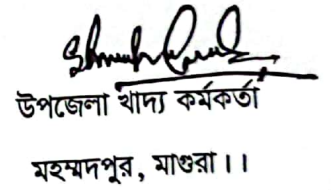 উপজেলা খাদ্য কর্মকর্তা
মহম্মদপুর, মাগুরা।।